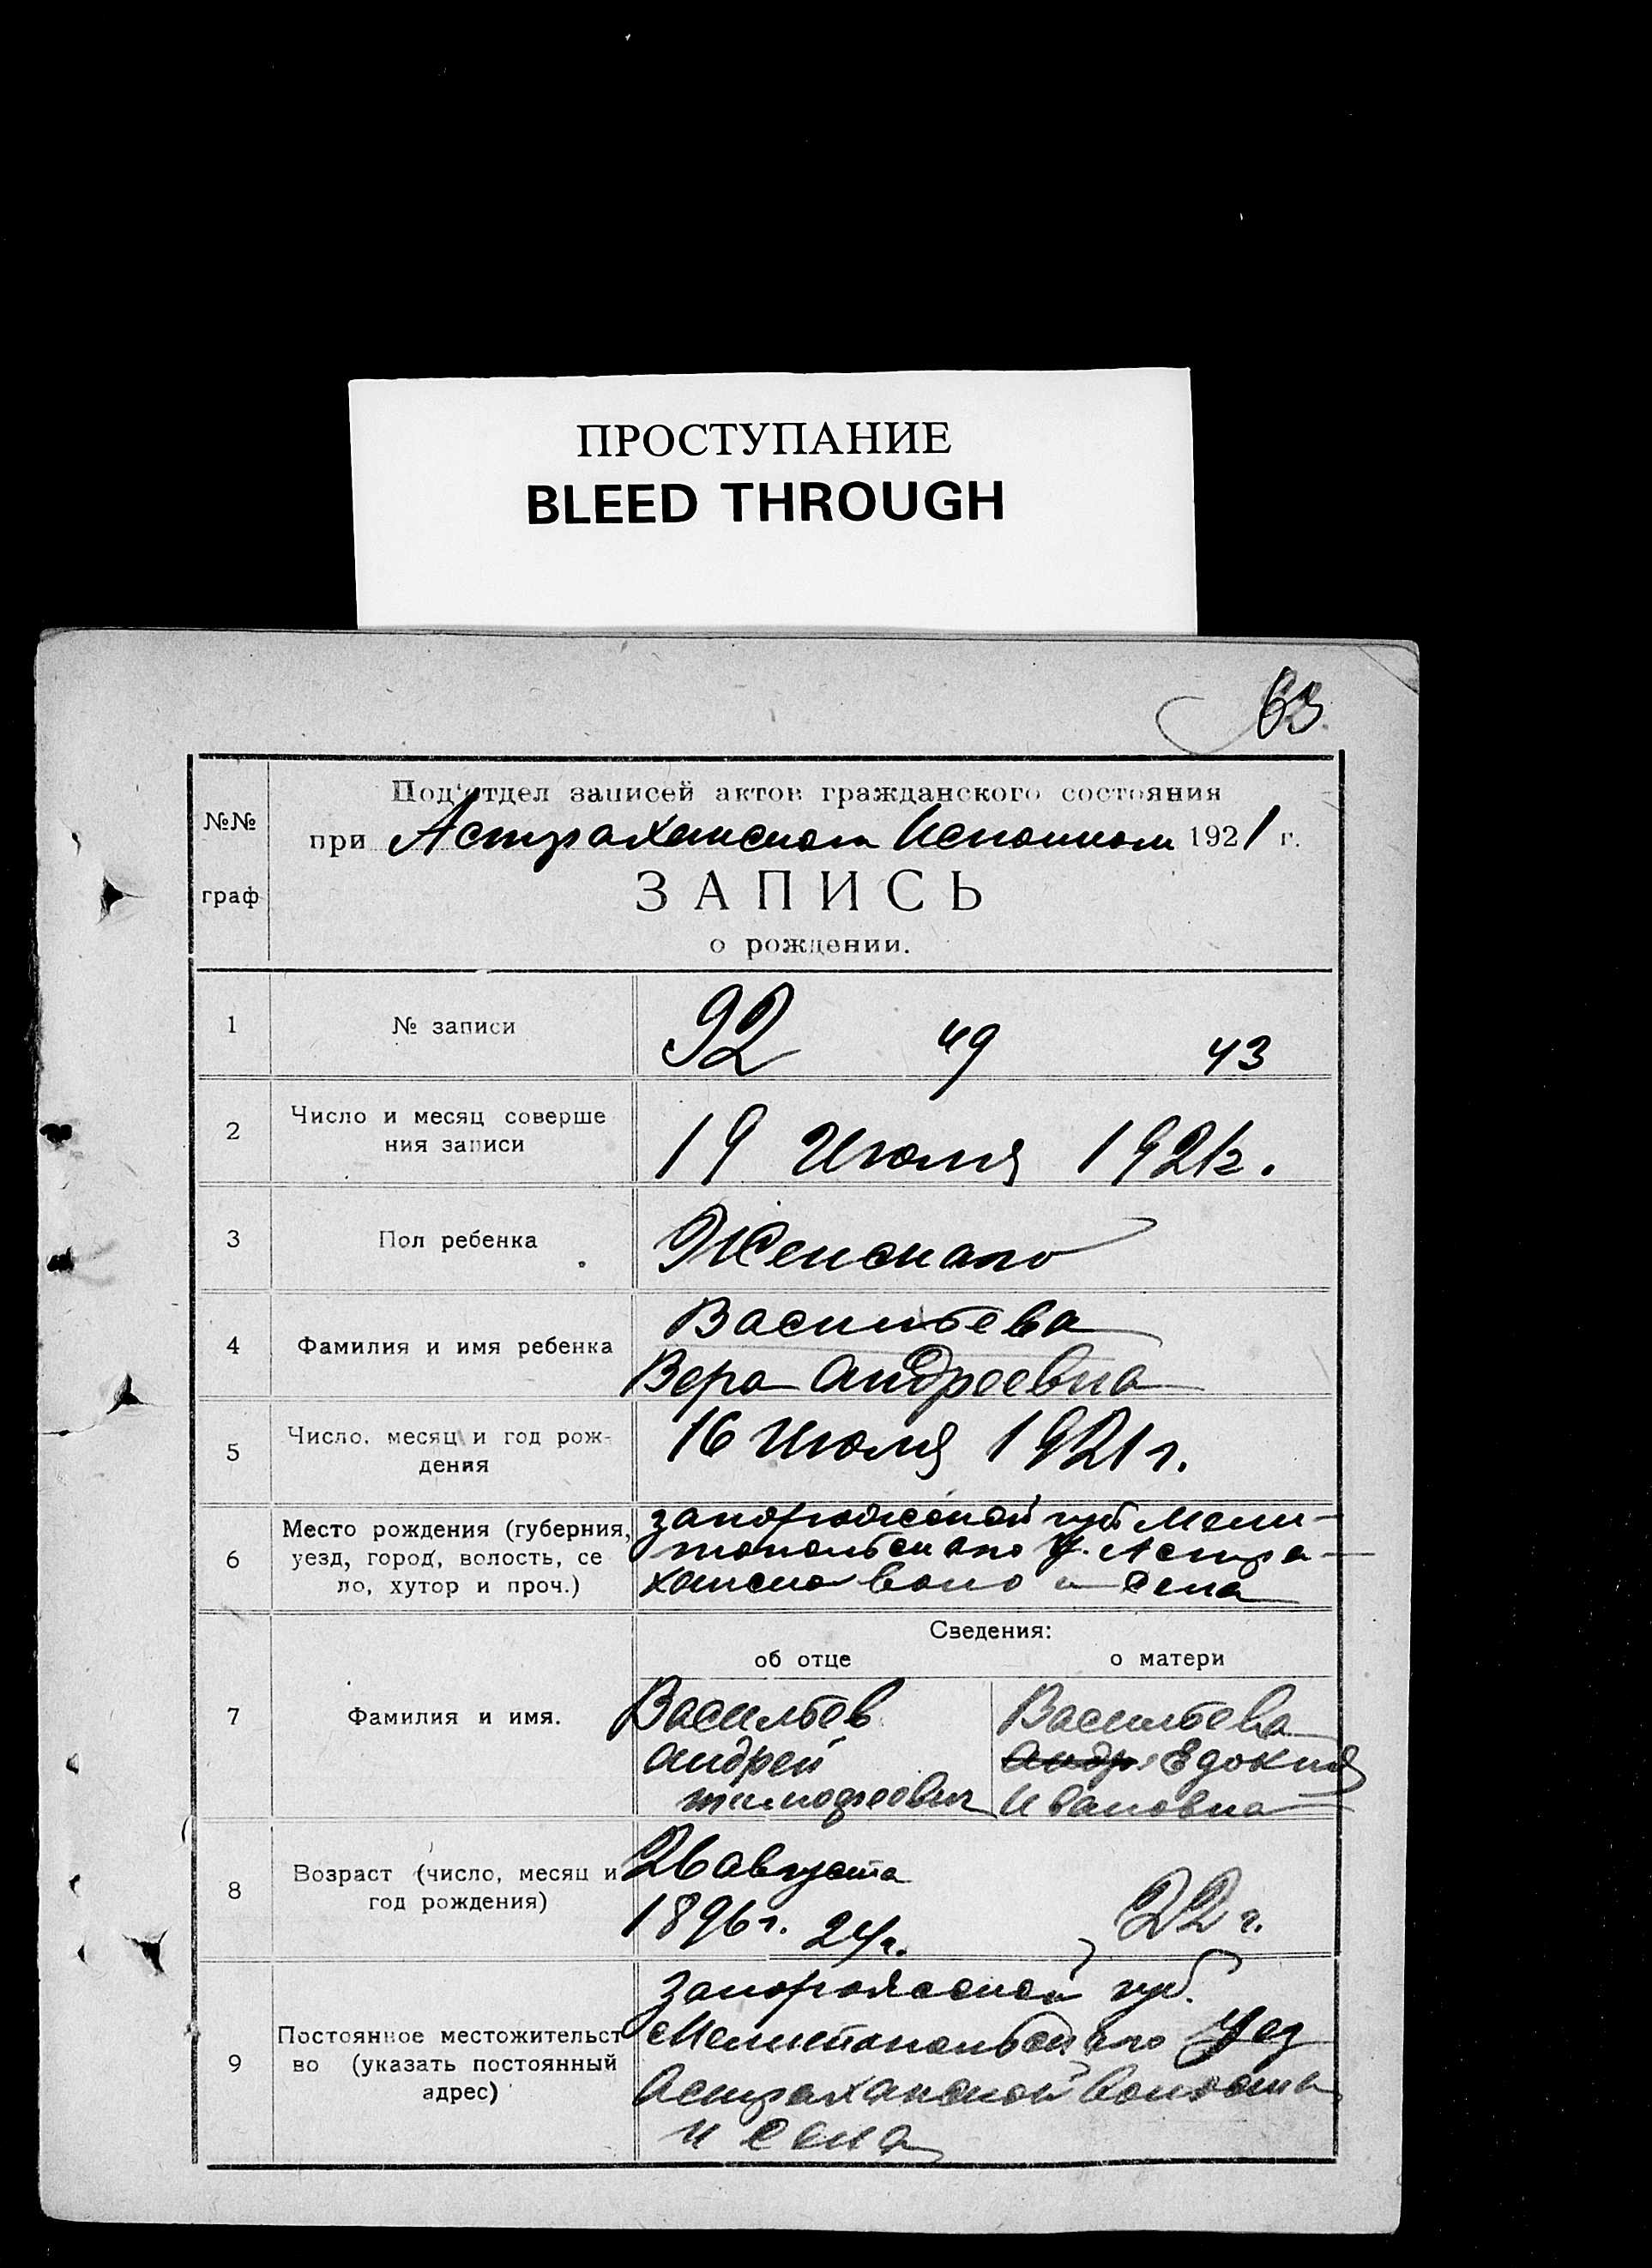 ПРОСТУПАНИЕ
BLEED THROUGH
63
№№
граф
Под'отдел записей актов гражданского состояния
при Астраханском Исполком 1921 г.
ЗАПИСЬ
о рождении.
1 № записи 92 49 43
2 Число и месяц соверше
ния записи
19 Июля 1921г.
3 Пол ребенка Женскаго
4 Фамилия и имя ребенка
Васильева
Вера Андреевна
5 Число, месяц и год рож-
дения
16 Июля 1921 г.
6 Место рождения (губерния,
уезд, город, волость, се
ло, хутор и проч.)
Запорожской губ Мели-
топольскаго У. Астра-
ханско воло и села
Сведения:
об отце о матери
7 Фамилия и имя.
Васильев
Андрей
Тимофеевич
Васильева
Андр. Едокия
Ивановна
8 Возраст (число, месяц и
год рождения)
26 августа
1896 г. 24 г.
22 г.
9 Постоянное местожительст
во (указать постоянный
адрес)
Запорожской губ.
Мелитопольскаго Уез
Астраханской Волости
и села